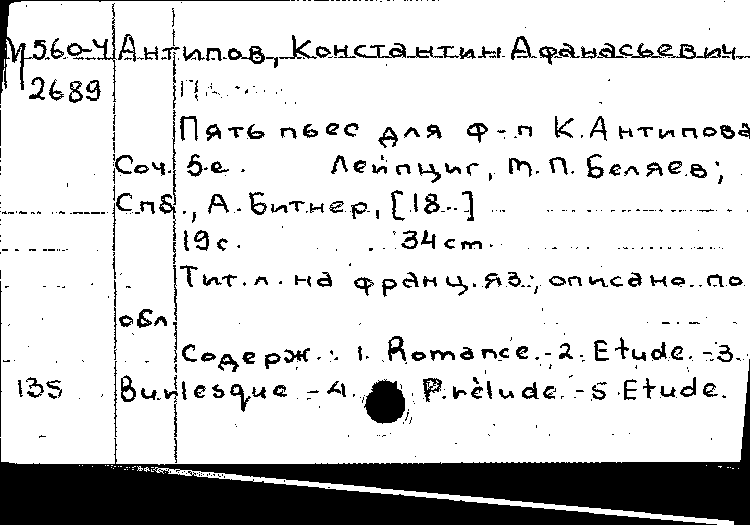 М560-4 Антипов, Константин Афанасьевич
2689
Пять пьес для ф-п К. Антипова
Соч. 5-е. Лейпциг, М.П. Беляев;
Спб., А. Битнер, [18..]
19 с. 34 cm.
Тит. л. на франц. яз.; описано по
обл.
Содерж.: 1. Romance. - 2. Etude. - 3.
135 Burlesque - 4. Prélude. - 5 Etude.